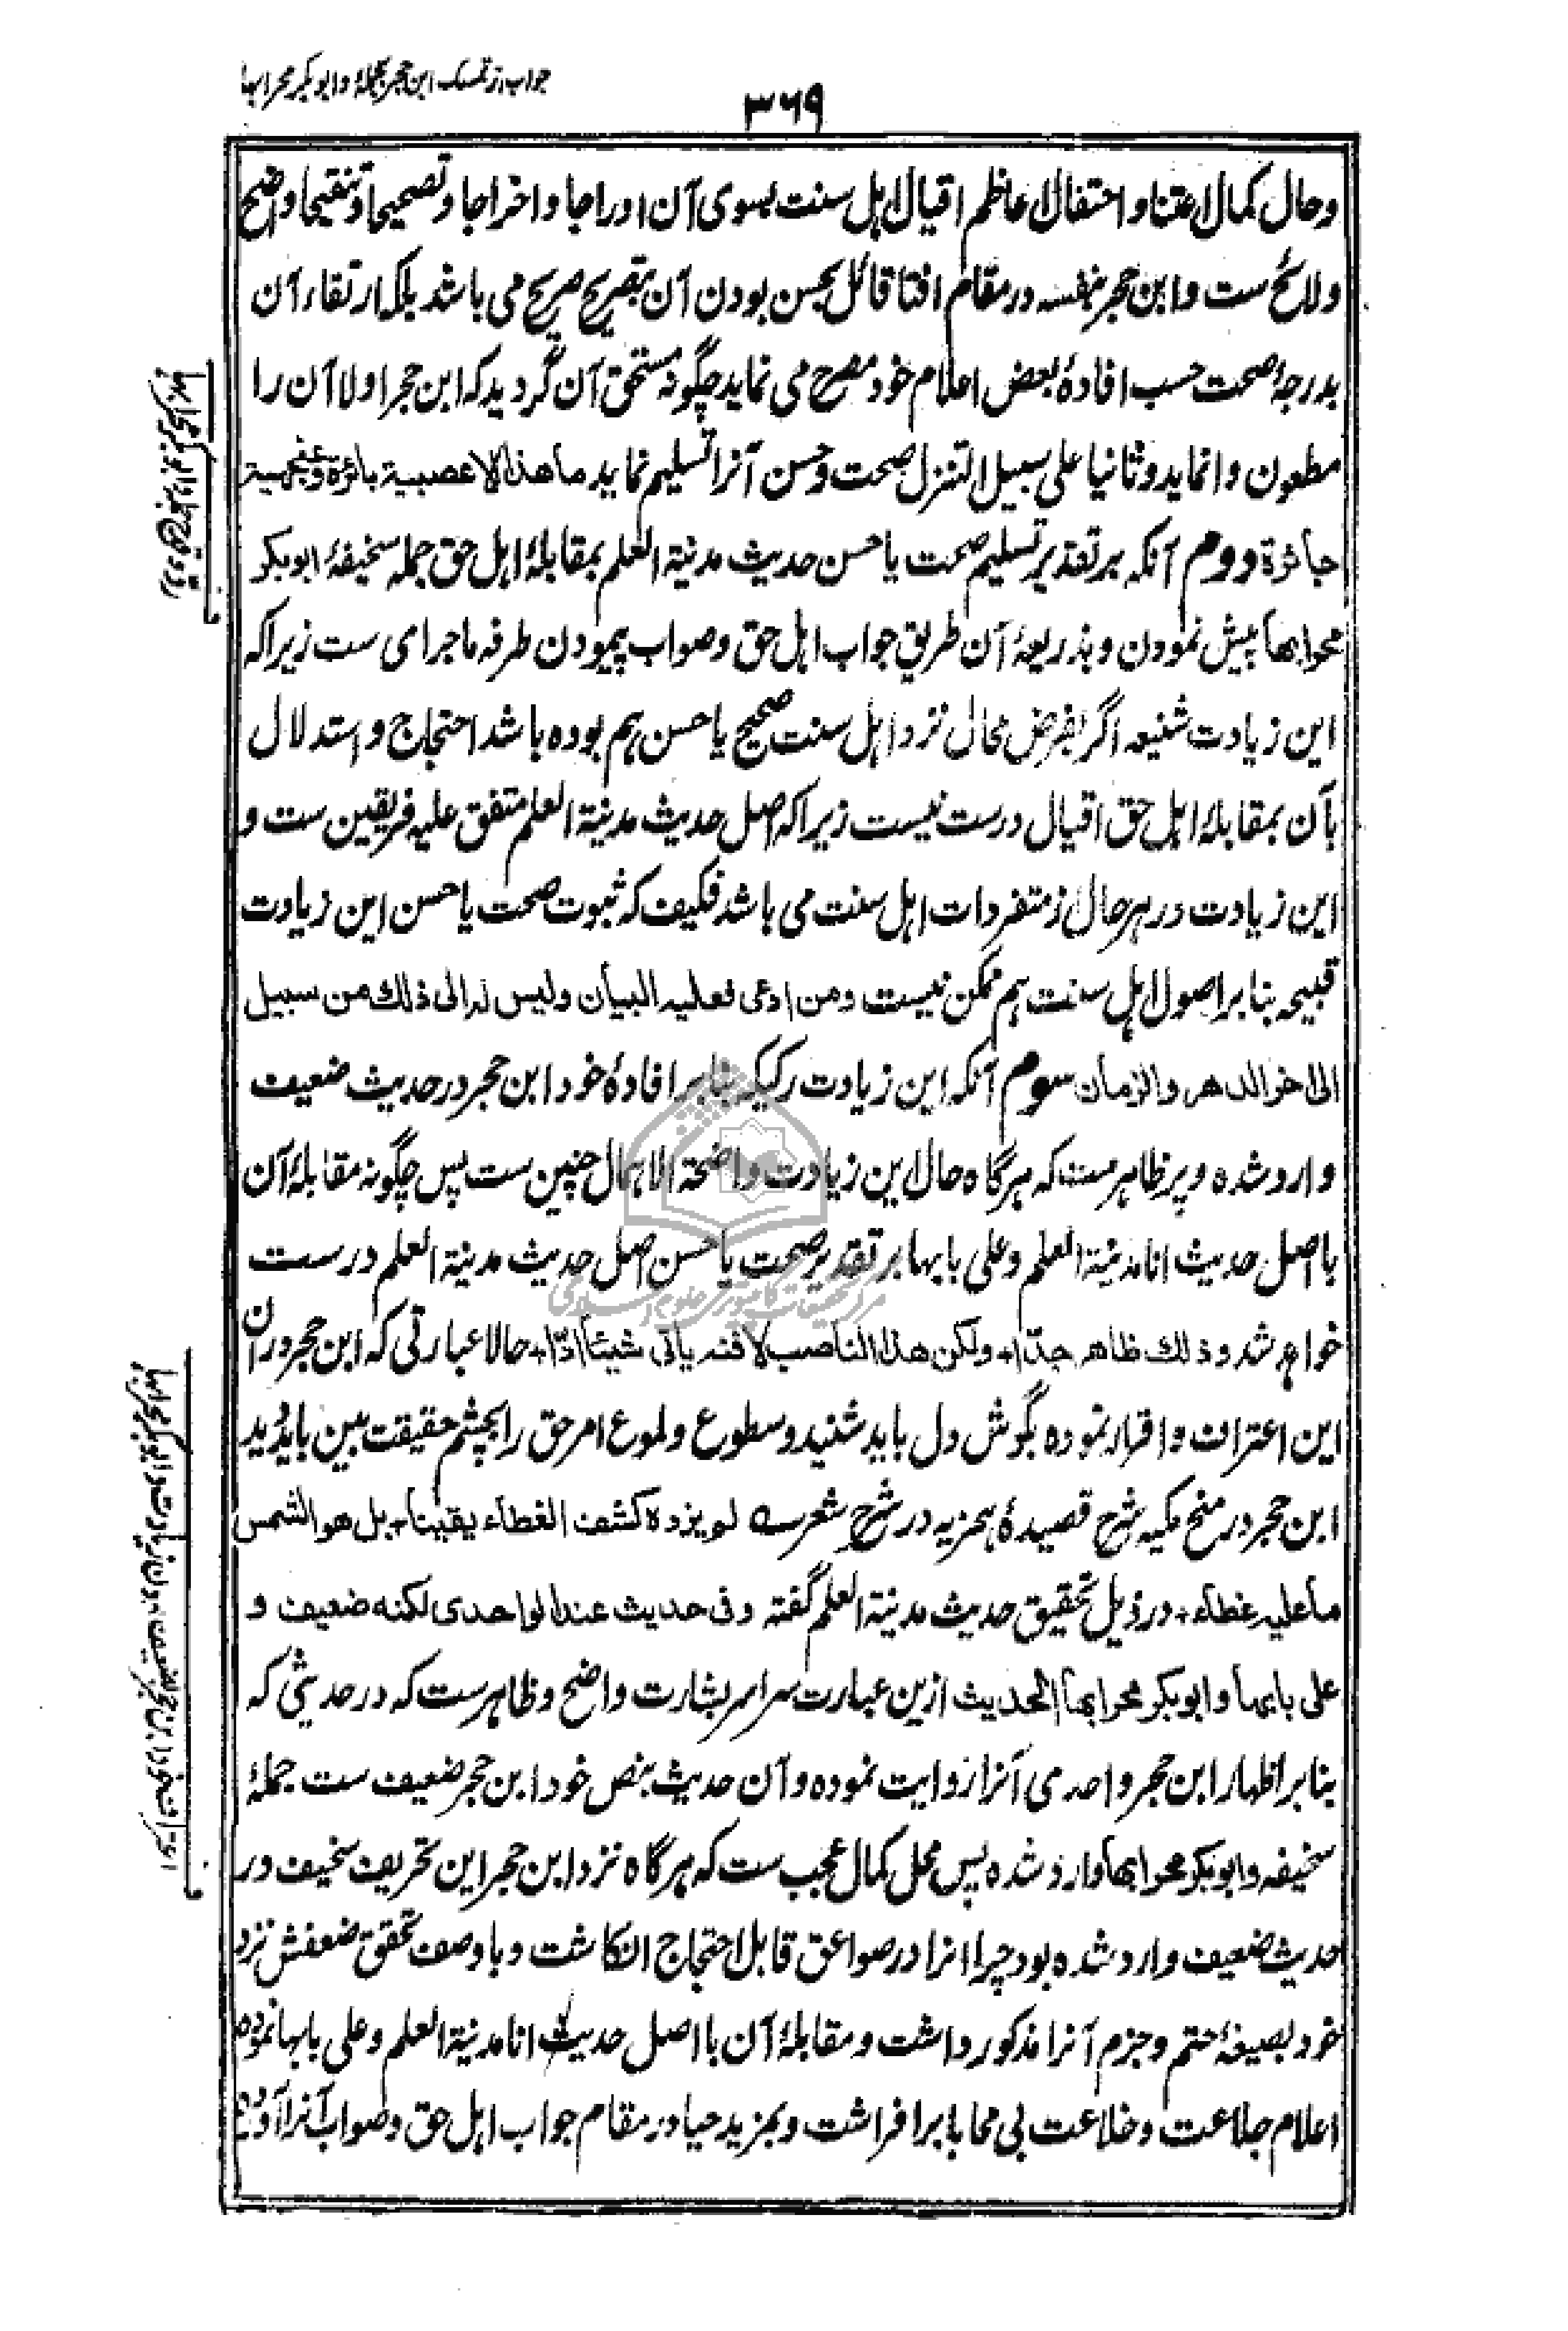 جواب از تمسک ابن حجر بجملهٔ و ابو بکر محرابها
۳۶۹
و حال کمال اعتنا و احتفال اعاظم اقیال اهل سنت بسوی آن ادراجا و اخراجا و تصحیحا و تنقیحا واضح
و لائح ست و ابن حجر بنفسه در مقام افتا قائل بحسن بودن آن بتصریح صریح می باشد بلکه ارتقاء آن
بدرجهٔ صحت حسب افادهٔ بعض اعلام خود مصرح می نماید چگونه مستحق آن گردید که ابن حجر اولا آن را
مطعون وا نماید و ثانیا علی سبیل التنزل صحت و حسن آنرا تسلیم نماید ما هذا الا عصبیة بائرة و عنجهیة
جائرة دووم آنکه بر تقدیر تسلیم صحت یا حسن حدیث مدینة العلم بمقابلهٔ اهل حق جمله سخیفهٔ ابو بکر
محرابها پیش نمودن و بذریعهٔ آن طریق جواب اهل حق و صواب پیمودن طرفه ماجرای ست زیرا که
این زیادت شنیعه اگر بفرض محال نزد اهل سنت صحیح یا حسن هم بوده باشد احتجاج و استدلال
بآن بمقابلهٔ اهل حق اقیال درست نیست زیرا که اصل حدیث مدینة العلم متفق علیه فریقین ست و
این زیادت در هر حال از متفردات اهل سنت می باشد فکیف که ثبوت صحت یا حسن این زیادت
قبیحه بنابر اصول اهل سنت هم ممکن نیست و من ادعی فعلیه البیان و لیس له الی ذلک من سبیل
الی اخر الدهر و الزمان سوم آنکه این زیادت رکیکه بنابر افادهٔ خود ابن حجر در حدیث ضعیف
وارد شده و پر ظاهرست که هر گاه حال این زیادت واضحة الاهمال چنین ست پس چگونه مقابلهٔ آن
با اصل حدیث انا مدینة العلم و علی بابها بر تقدیر صحت یا حسن اصل حدیث مدینة العلم درست
خواهد شد و ذلک ظاهر جدّا+ و لکن هذا الناصب لافته یاتی شیئا ادّا+ حالا عبارتی که ابن حجر دران
این اعتراف و اقرار نموده بگوش دل باید شنید و سطوع و لموع امر حق را بچشم حقیقت بین باید دید
ابن حجر در منح مکیه شرح قصیدهٔ همزیه در شرح شعر ؎ لم یزده کشف الغطاء یقینا+ بل هو الشمس
ما علیه غطاء+ در ذیل تحقیق حدیث مدینة العلم گفته و فی حدیث عند الواحدی لکنه ضعیف و
علی بابها و ابو بکر محرابها الحدیث ازین عبارت سراسر بشارت واضح و ظاهرست که در حدیثی که
بنابر اظهار ابن حجر واحدی آنرا روایت نموده و آن حدیث بنص خود ابن حجر ضعیف ست جملهٔ
سخیفه و ابو بکر محرابها وارد شده پس محل کمال عجب ست که هر گاه نزد ابن حجر این تحریف سخیف در
حدیث ضعیف وارد شده بود چرا انرا در صواعق قابل احتجاج انکاشت و با وصف تحقق ضعفش نزد
خود بصیغهٔ حتم و جزم آنرا مذکور داشت و مقابلهٔ آن با اصل حدیث انا مدینة العلم و علی بابها نموده
اعلام جلاعت و خلاعت بی محابا برافراشت و بمزید حیا در مقام جواب اهل حق و صواب آنرا آورده